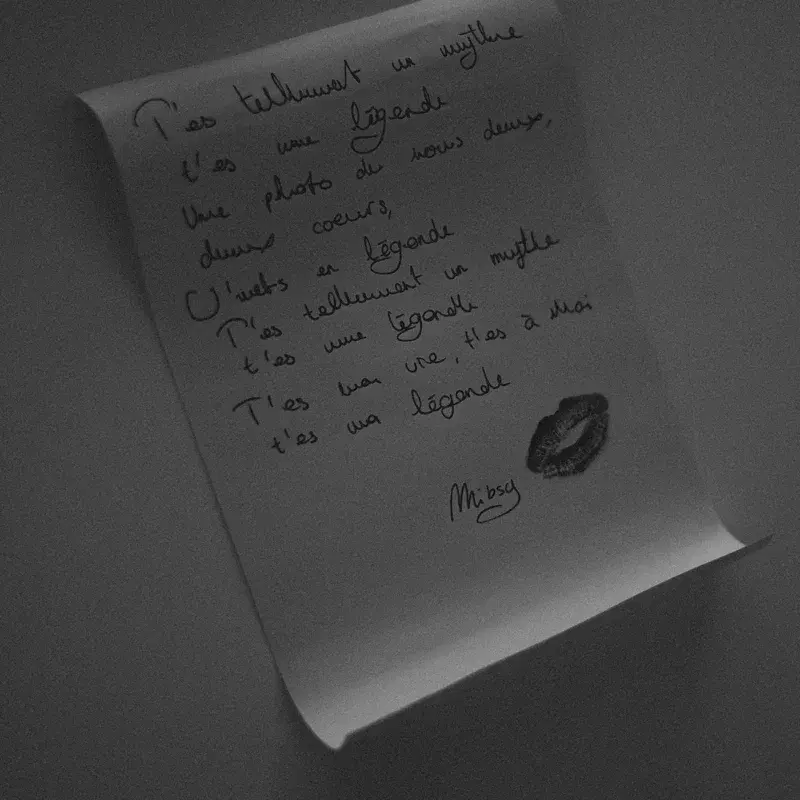 T'es tellement un mythe
t'es une légende
Une photo de nous deux,
deux coeurs,
J'mets en légende
T'es tellement un mythe
t'es une légende
T'es ma vie, t'es à moi
t'es ma légende
Mibsy